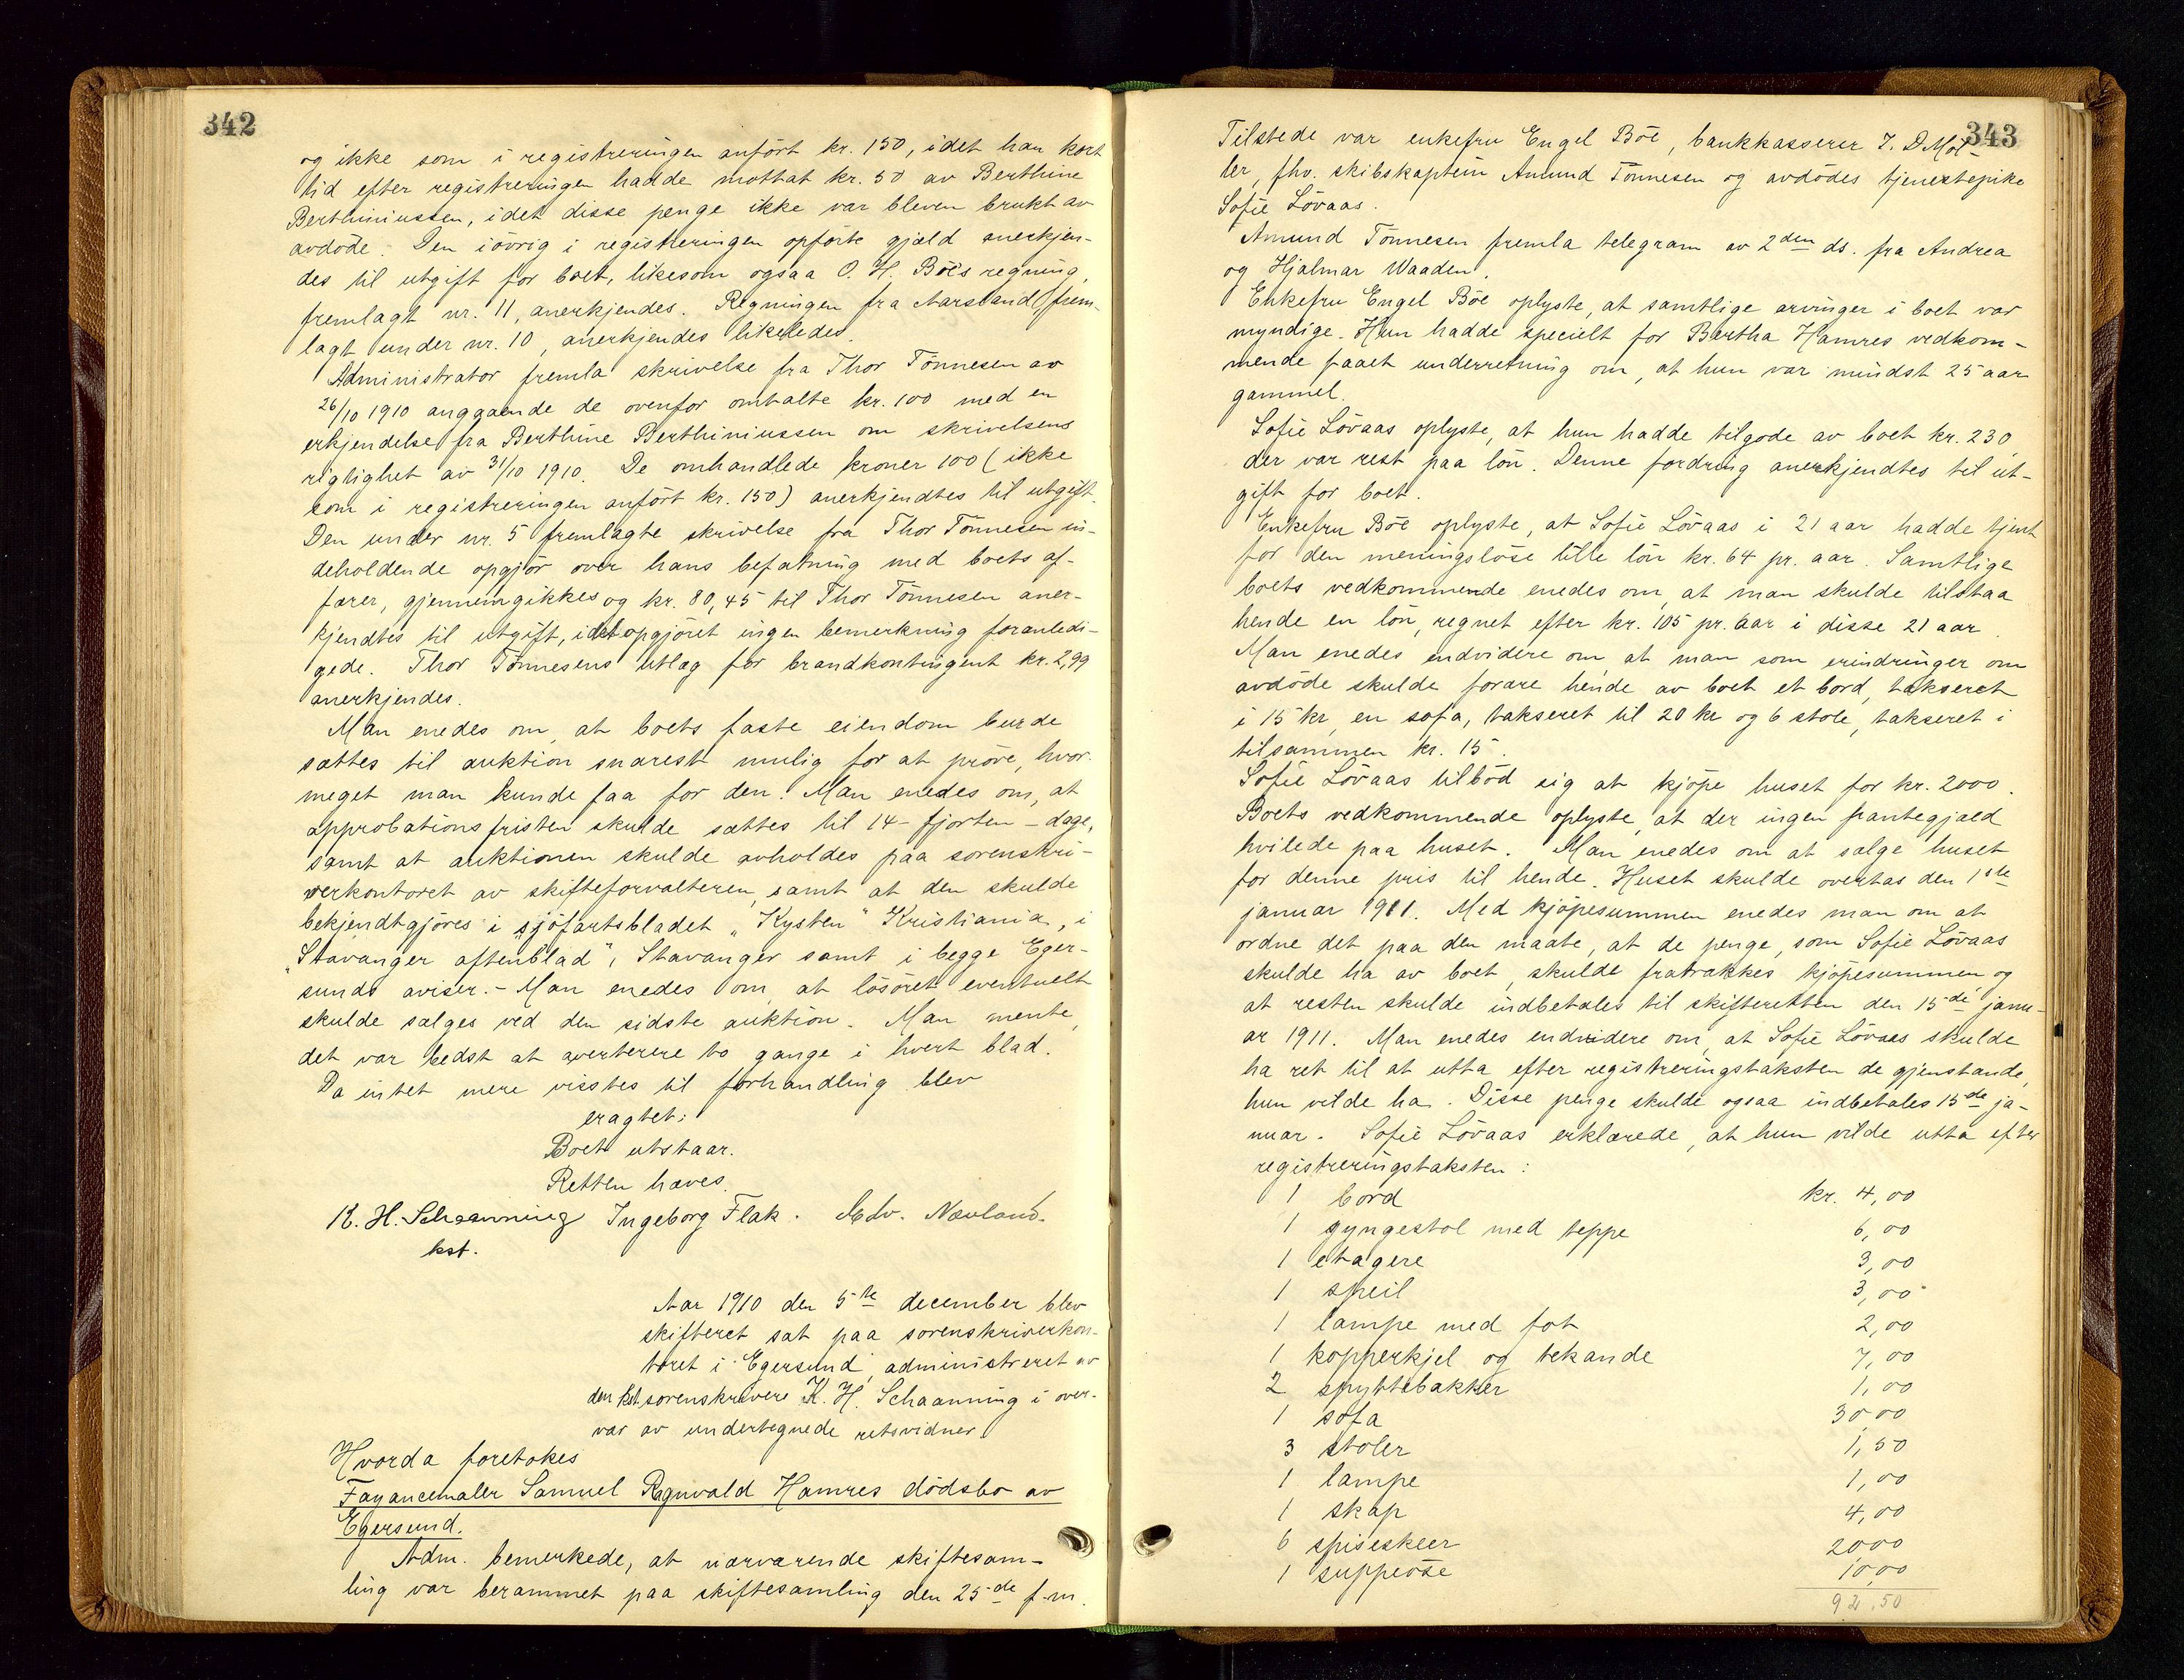 342
og ikke som i registreringen anført kr. 150, idet han kort
tid efter registreringen hadde mottat kr. 50 av Berthine
Berthiniussen, idet disse penge ikke var bleven brukt av
avdøde. Den iøvrig i registreringen opførte gjæld anerkjen-
des til utgift for boet, likesom ogsaa O. H. Böe's regning,
fremlagt nr. 11, anerkjendes. Regningen fra Aarstand, frem-
lagt under nr. 10, anerkjendes likeledes.
Administrator fremla skrivelse fra Thor Tönnesen av
26/10 1910 anggaende de ovenfor omtalte kr. 100 med en
erkjendelse fra Berthine Berthiniussen om skrivelsens
rigtighet av 31/10 1910. De omhandlede kroner 100 (ikke
som i registreringen anført kr. 150) anerkjendtes til utgift.
Den under nr. 5 fremlagte skrivelse fra Thor Tönnesen in-
deholdende opgjør over hans befatning med boets af-
færer, gjennemgikkes og kr. 80,45 til Thor Tönnesen aner-
kjendtes til utgift, idet opgjöret ingen bemerkning foranledi-
gede. Thor Tönnesens utlæg for brandkontingent kr. 2,99
anerkjendes.
Man enedes om, at boets faste eiendom burde
sættes til auktion snarest mulig for at pröve, hvor
meget man kunde faa for den. Man enedes om, at
approbationsfristen skulde sættes til 14 - fjorten - dage,
samt at auktionen skulde avholdes paa sorenskri-
verkontoret av skifteforvalteren, samt at den skulde
bekjendtgjöres i sjöfartsbladet „Kysten" Kristiania, i
„Stavanger aftenblad", Stavanger samt i begge Eger-
sunds aviser. - Man enedes om, at lösöret eventuelt
skulde sælges ved den sidste auktion. Man mente,
det var bedst at averterere to gange i hvert blad.
Da intet mere visstes til forhandling blev
eragtet:
Boet utstaar.
Retten hæves.
K. H. Schaanning Ingeborg Flak. Edv. Nævland.
kst.
Aar 1910 den 5te december blev
skifteret sat paa sorenskriverkon-
toret i Egersund, administreret av
den kst. sorenskrivere K. H. Schaanning i over-
vær av undertegnede retsvidner.
Hvorda foretokes
Fayancemaler Samuel Ragnvald Hamres dödsbo av
Egersund.
Adm. bemerkede, at nærværende skiftesam-
ling var berammet paa skiftesamling den 25de f.m.
343
Tilstede var enkefru Engel Böe, bankkasserer J. D Möl-
ler, fhv. skibskaptein Amund Tönnesen og avdödes tjenestepike
Sofie Lövaas.
Amund Tönnesen fremla telegram av 2den ds. fra Andrea
og Hjalmar Waaden.
Enkefru Engel Böe oplyste, at samtlige arvinger i boet var
myndige. Hun hadde specielt for Bertha Hamres vedkom-
mende faaet underretning om, at hun var mindst 25 aar
gammel.
Sofie Lövaas oplyste, at hun hadde tilgode av boet kr. 230
der var rest paa lön. Denne fordring anerkjendtes til ut-
gift for boet.
Enkefru Böe oplyste, at Sofie Lövaas i 21 aar hadde tjent
for den meningslöse lille lön kr. 64 pr. aar. Samtlige
boets vedkommende enedes om, at man skulde tilstaa
hende en lön, regnet efter kr. 105 pr. aar i disse 21 aar.
Man enedes endvidere om at man som erindringer om
avdöde skulde forære hende av boet et bord, takseret
i 15 kr, en sofa, takseret til 20 kr og 6 stole, takseret i
tilsammen kr. 15.
Sofie Lövaas tilböd sig at kjöpe huset for kr. 2000.
Boets vedkommende oplyste, at der ingen pantegjæld
hvilede paa huset. Man enedes om at sælge huset
for denne pris til hende. Huset skulde overtas den 1ste
januar 1911. Med kjöpesummen enedes man om at
ordne det paa den maate, at de penge, som Sofie Lövaas
skulde ha av boet, skulde fratrækkes kjöpesummen og
at resten skulde indbetales til skifteretten den 15de janu-
ar 1911. Man enedes endvidere om, at Sofie Lövaas skulde
ha ret til at utta efter registreringstaksten de gjenstande,
hun vilde ha. Disse penge skulde ogsaa indbetales 15de ja-
nuar. Sofie Lövaas erklærede, at hun vilde utta efter
registreringstaksten:
1 bord kr. 4,00
1 gyngestol med teppe 6,00
1 etagere 3,00
1 speil 3,00
1 lampe med fot 2,00
1 kopperkjel og tekande 7,00
2 spyttebakker 1,00
1 sofa 30,00
3 stoler 1,50
1 lampe 1,00
1 skap 4,00
6 spiseskeer 20,00
1 suppeöse 10,00
92.50